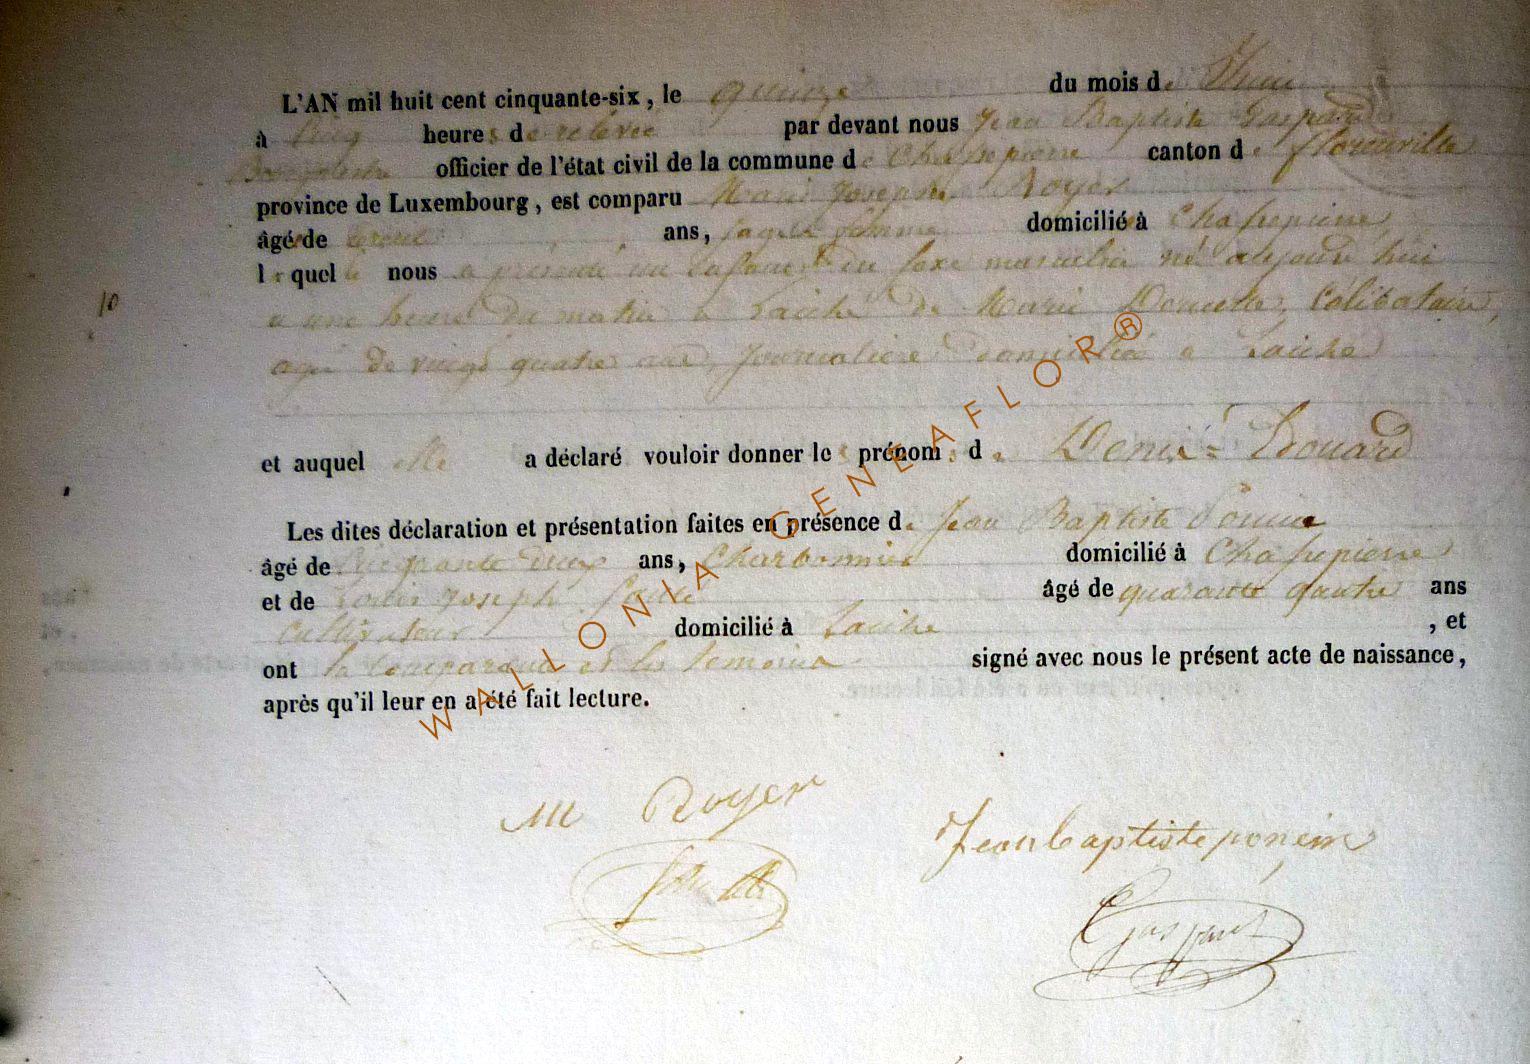 L'AN mil huit cent cinquante-six, le quinze du mois de Juin
à cinq heures de relevée par devant nous Jean Baptiste Gaspard
Bourgmestre officier de l'état civil de la commune de Chassepierre canton de florenville
province de Luxembourg, est comparu Marie Joseph Royer
âgée de ans, sage femme domicilié à Chassepierre
laquelle nous a présenté un Enfant du sexe masculin né aujourd'hui
10
a une heure du matin a Laiche de Marie Célibataire,
agé de vingt quatre ans, Journaliere domiciliée a Laiche
et auquel elle a déclaré vouloir donner les prénoms de Edouard
Les dites déclaration et présentation faites en présence de Jean Baptiste
âgé de Cinquante deux ans, Charbonnier domicilié à Chassepierre
et de Louis Joseph âgé de quarante quatre ans
Cultivateur domicilié à Laiche , et
ont la Comparante et les temoins signé avec nous le présent acte de naissance,
après qu'il leur en a été fait lecture.
WALLONIA GENEAFLOR®
M Royer
Jean baptiste ponsin
Gaspard